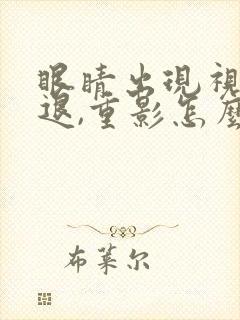 眼睛出現視
退,重影怎麼
布莱尔